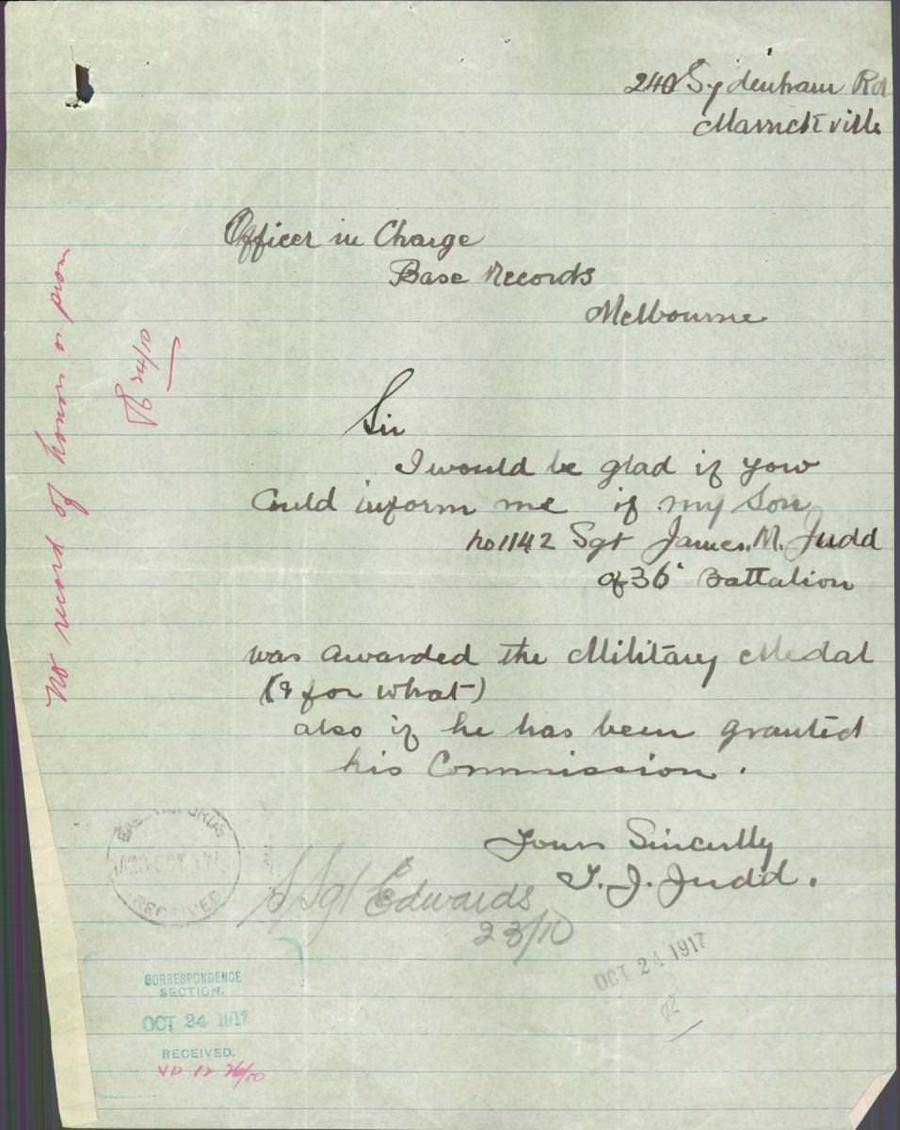 240 Sydenham Rd
Marrickville
Officer in Charge
Base Records
Melbourne
Sir
I would be glad if you
Could inform me if my Son
no 1142 Sgt James. M. Judd
of 36' Battalion
was awarded the Military Medal
(& for what)
also if he has been granted
his Commission.
Yours Sincerlly
T. J. Judd.
S/Sgt Edwards
23/10
OCT 24 1917
RECEIVED
CORRESPONDENCE
SECTION.
OCT 24 1917
RECEIVED.
No record of honor or prom
24/10